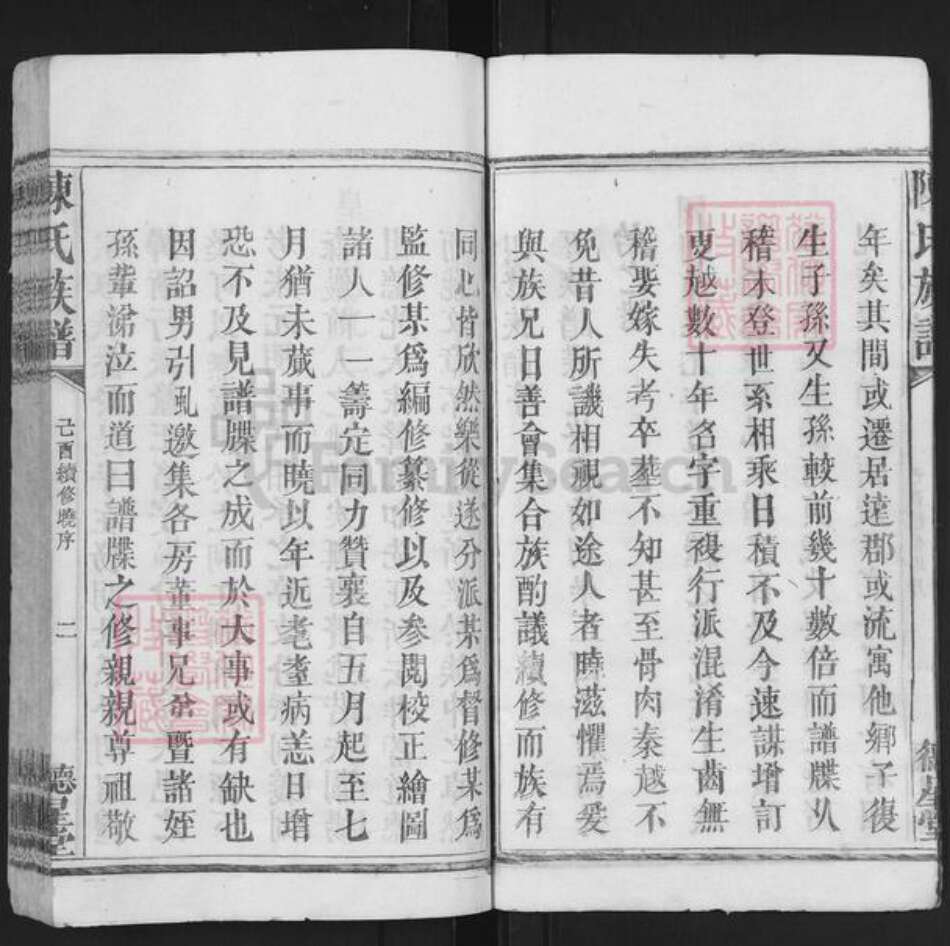 年矣其間或遷居遠郡或流寓他鄉子復
生子孫又生孫較前幾十數倍而譜牒久
稽未登世系相乘日積不及今速謀增訂
更越數十年名字重複行派混淆生齒無
稽娶嫁失考卒塟不知甚至骨肉秦越不
免昔人所譏相視如途人者曉滋懼焉爰
與族兄日善會集合族酌議續修而族有
同心皆欣然樂從遂分派某爲督修某爲
監修某爲編修纂修以及叅閱校正繪圖
諸人一一籌定同力贊襄自五月起至七
月猶未蕆事而曉以年近耄耋病恙日增
恐不及見譜牒之成而於大事或有缺也
因詔男引虬邀集各房董事兄弟暨諸姪
孫輩涕泣而道曰譜牒之修親親尊祖敬
陳氏族譜
己酉續修曉序
二
德星堂
FamilySearch